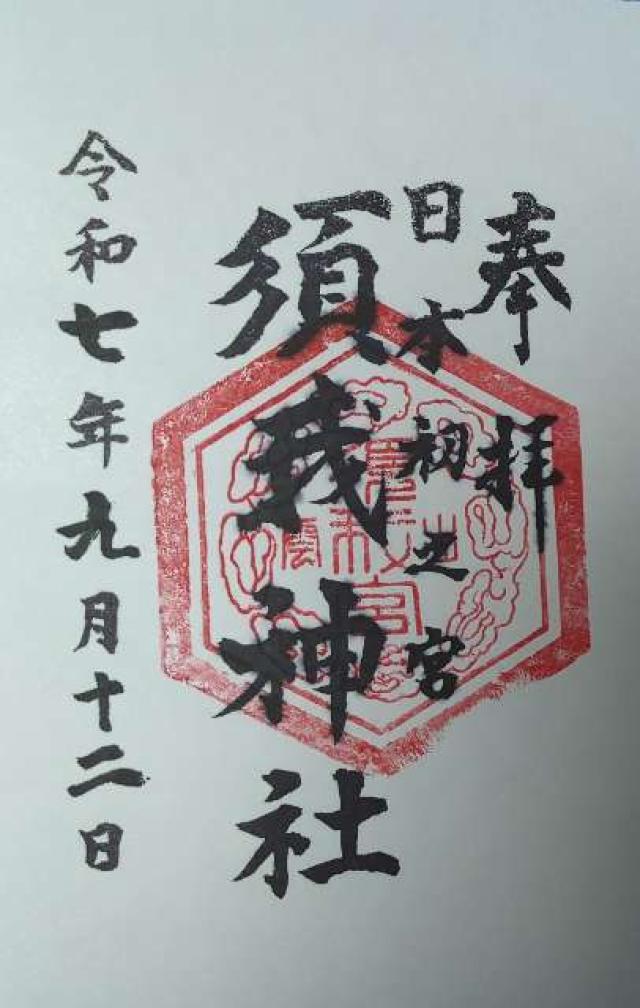 奉拝
日本初之宮
須我神社
令和七年九月十二日